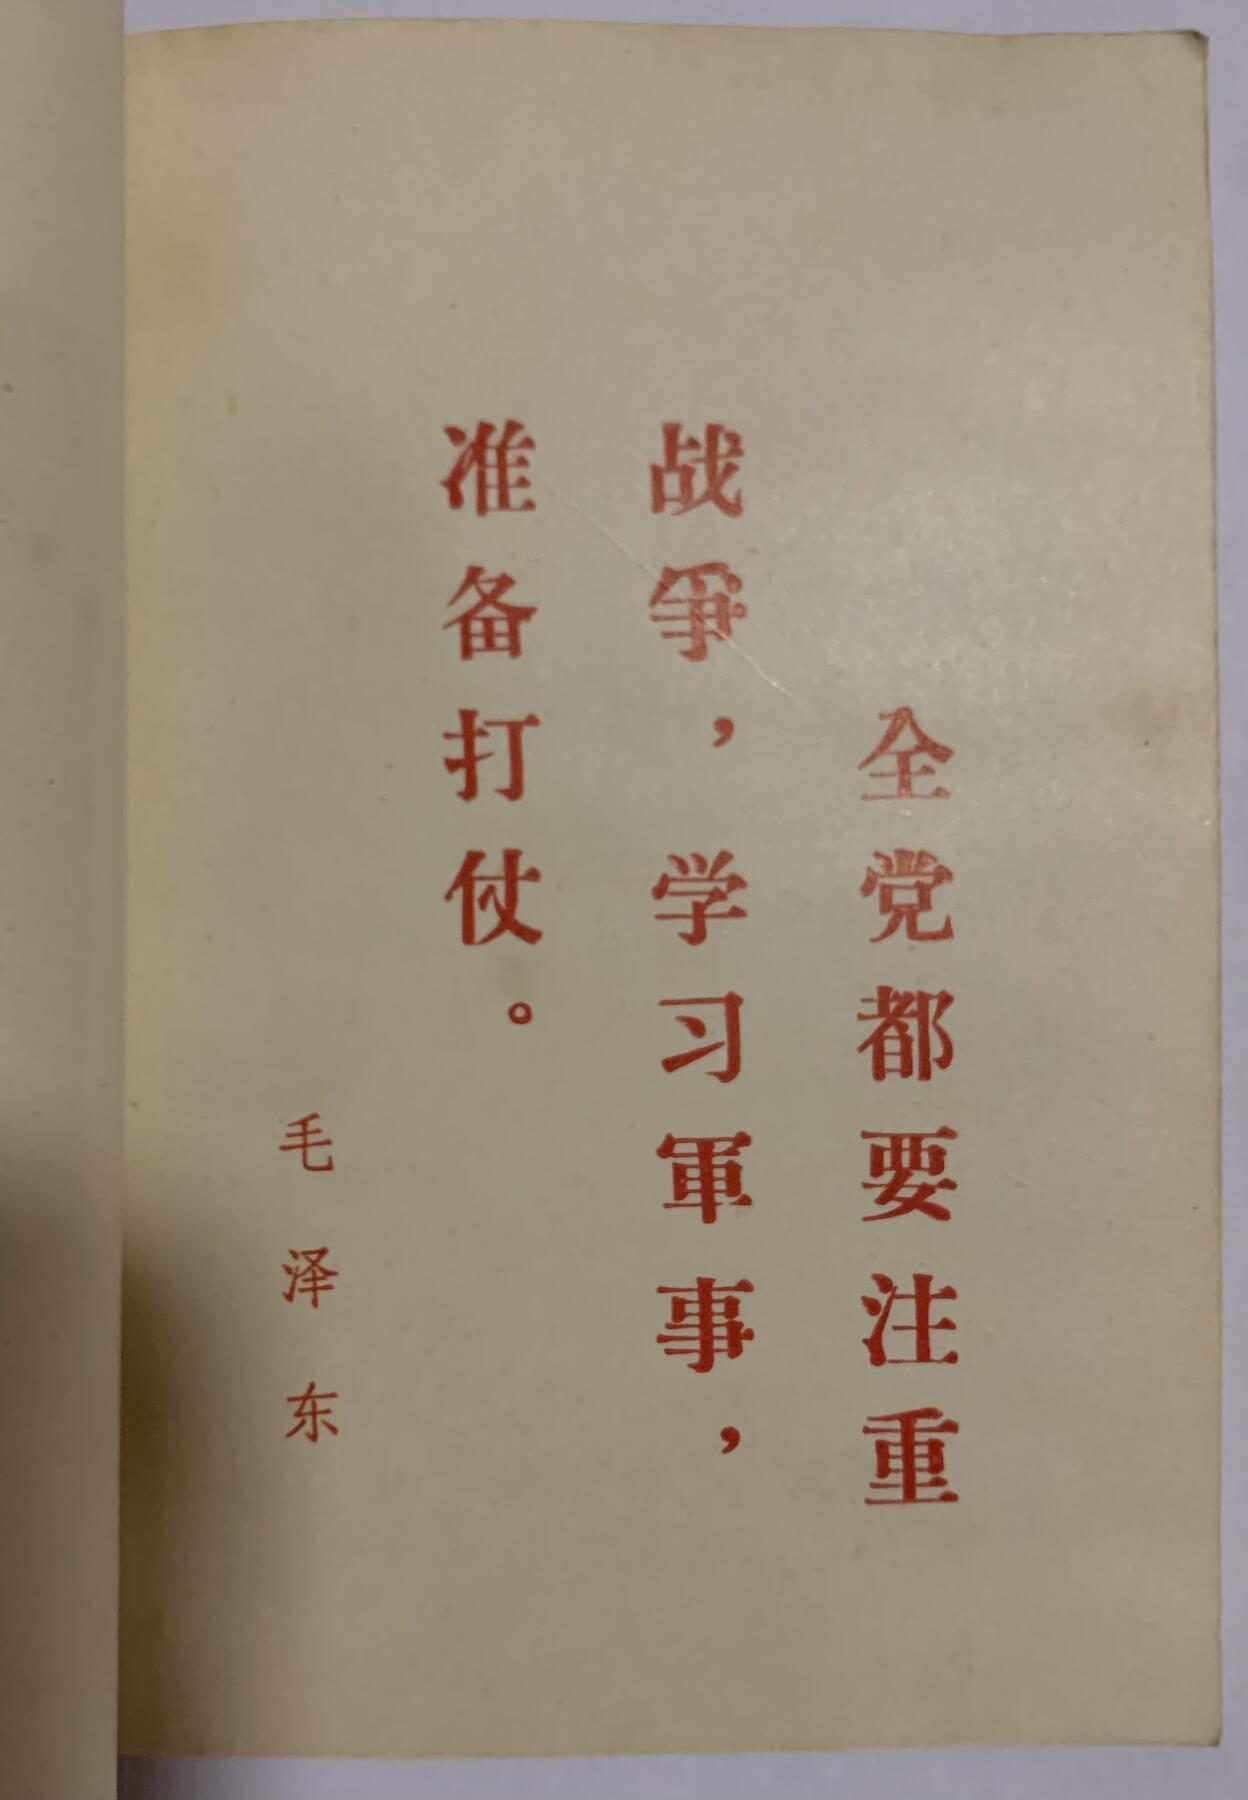 全党都要注重
战爭，学习軍事，
准备打仗。
毛泽东